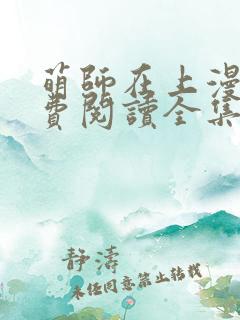 萌師在上漫
費閱讀全集
静濤
未任同意禁止转载